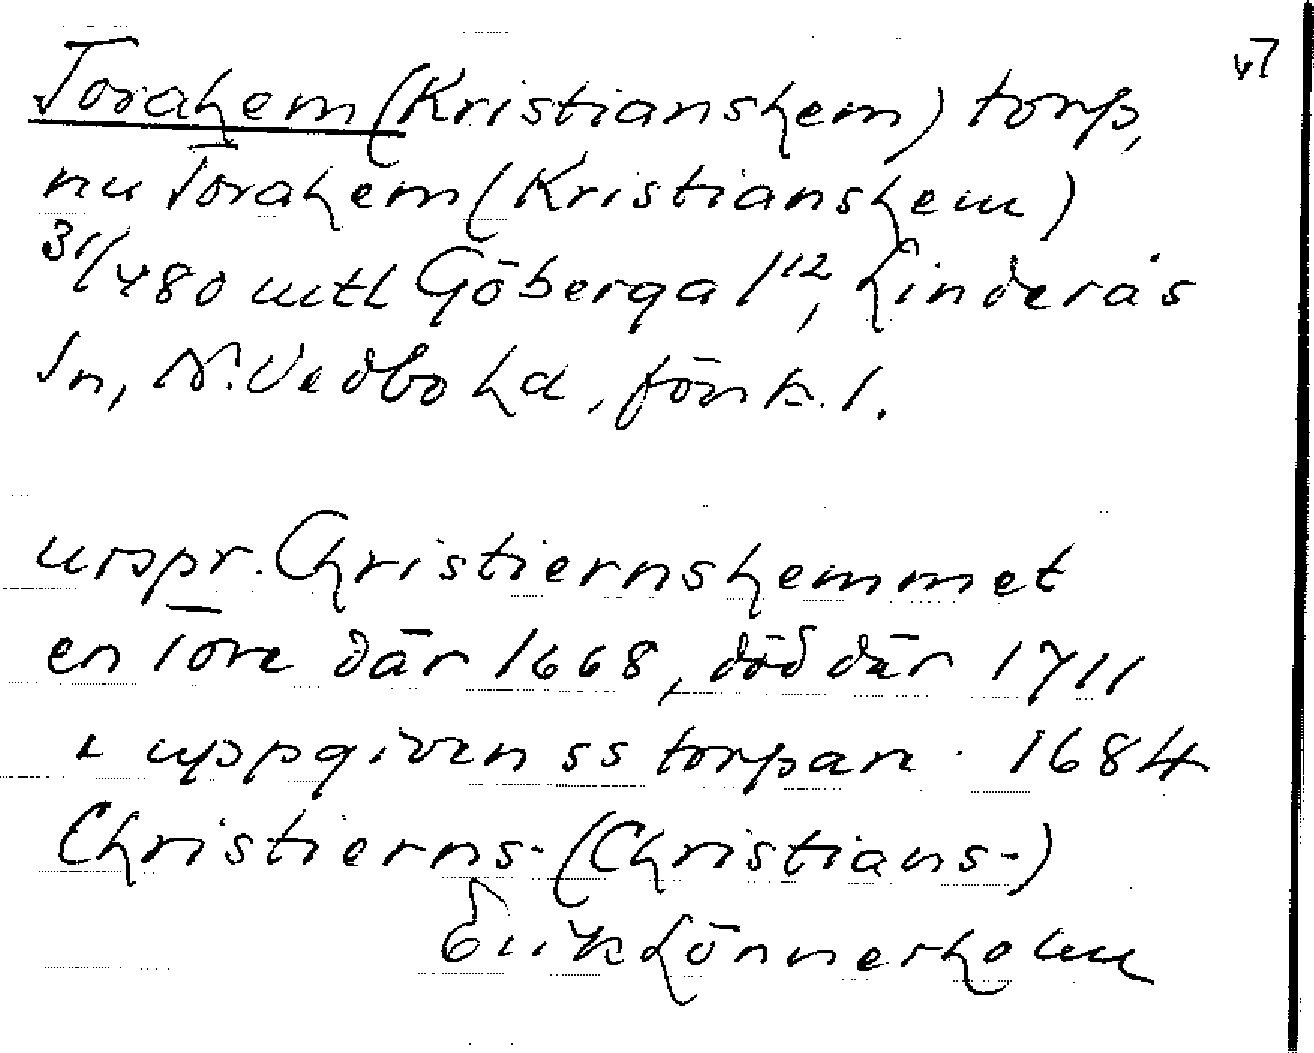 v7
Torahem (Kristianshem) torp,
nu Torahem (Kristianshem)
31/480 mtl Göberga 1¹², Linderås
sn, N. Vedbo hd, Jönk. l.
urspr. Christiernshemmet
en Tore där 1668, död där 1711
uppgiven ss torpare. 1684
Christierns- (Christians-)
Erik Lönnerholm